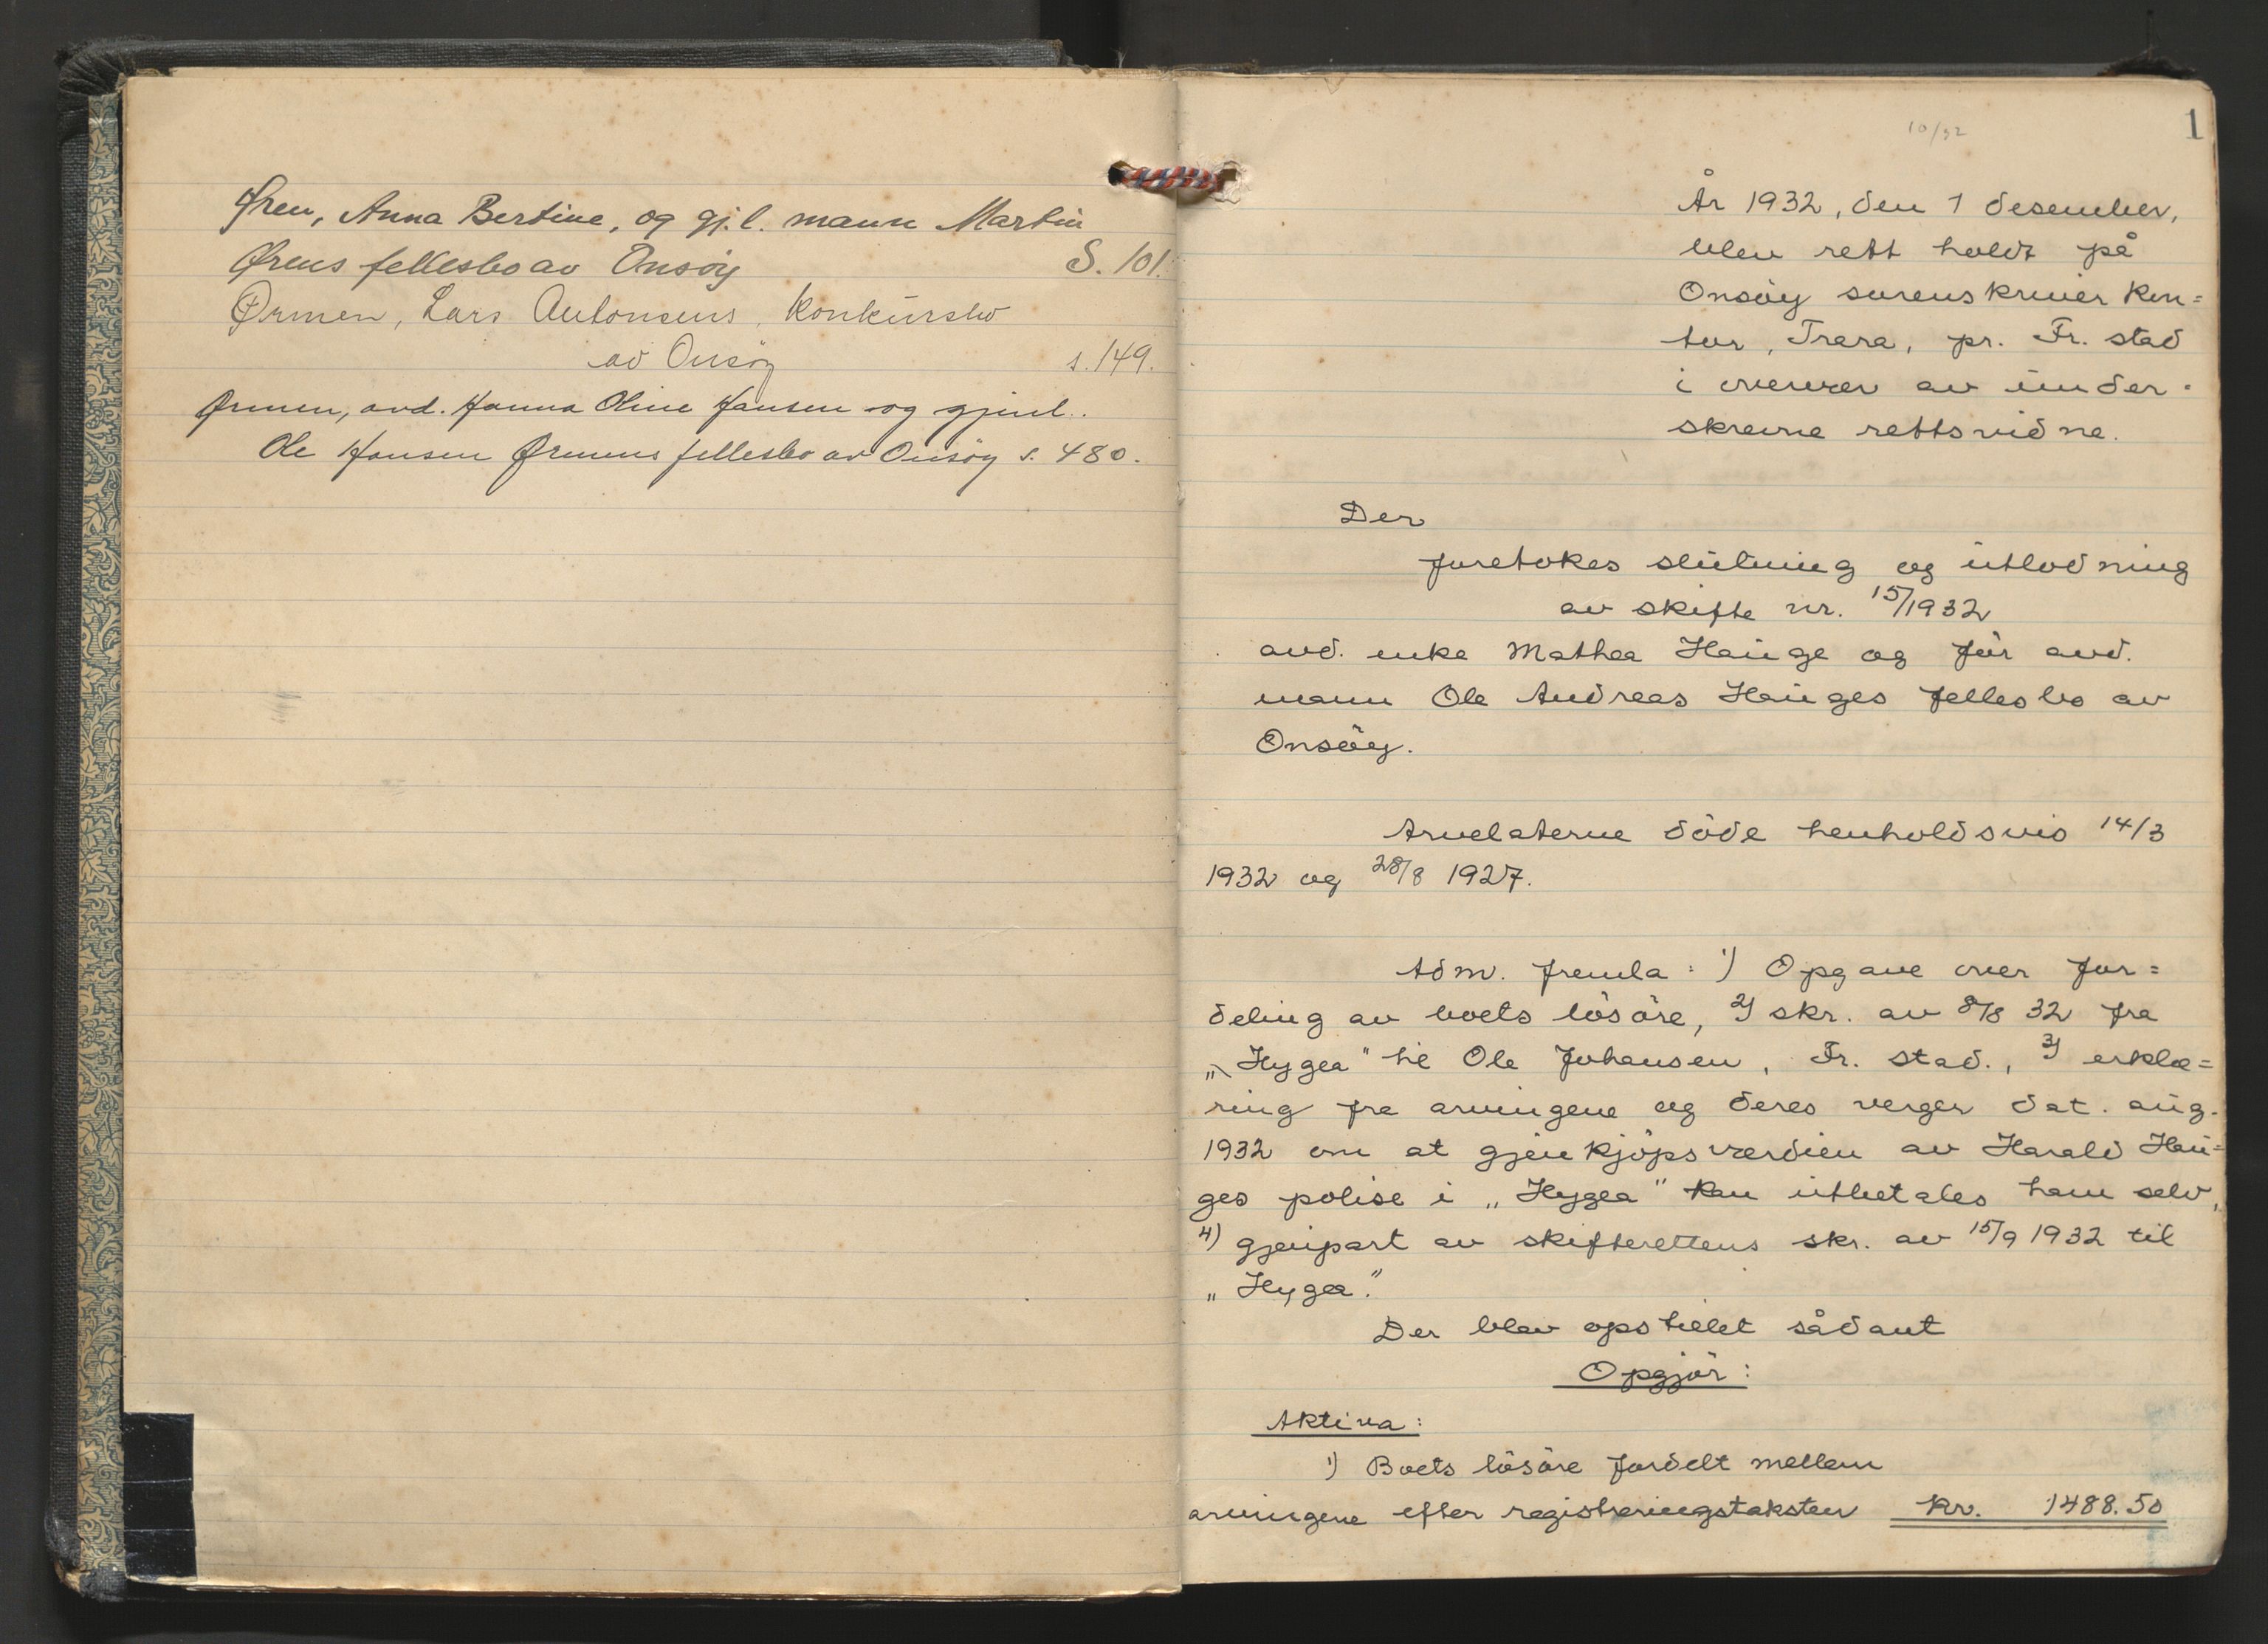 Øren, Anna Bertine, og gj.l. mann Martin
Ørens fellesbo av Onsøy S. 101.
Ørmen, Lars Antonsens, konkursbo
av Onsøy s. 149.
Ørmen, avd. Hanna Oline Hansen og gjenl.
Ole Hansen Ørmens fellesbo av Onsøy s. 480.
10/32
1
År 1932, den 1 desember,
blev rett holdt på
Onsöy sorenskriver kon=
tor, Trara, pr. Fr. stad
i overvær av under-
skrevne rettsvidne.
Der
foretokes slutning og utlodning
av skifte nr. 15/1932
avd. enke Mathea Hauge og før avd.
mann Ole Andreas Hauges fellesbo av
Onsöy.
Arvelaterne döde henholdsvis 14/3
1932 og 28/8 1927.
Adm. fremla: 1) Opgave over for=
deling av boets lösöre, 2) skr. av 8/8 32 fra
„Hygea" til Ole Johansen, Fr. stad., 3) erklæ=
ring fra arvingene og deres verger dat. aug.
1932 om at gjenkjöpsverdien av Harald Hau=
ges polise i „Hygea" kan utbetales ham selv,
4) gjenpart av skifterettens skr. av 15/9 1932 til
„Hygea."
Der blev opstillet sådant
Opgjör:
Aktiva:
1) Boets lösöre fordelt mellem
arvingene efter registreringstaksten kr. 1488.50